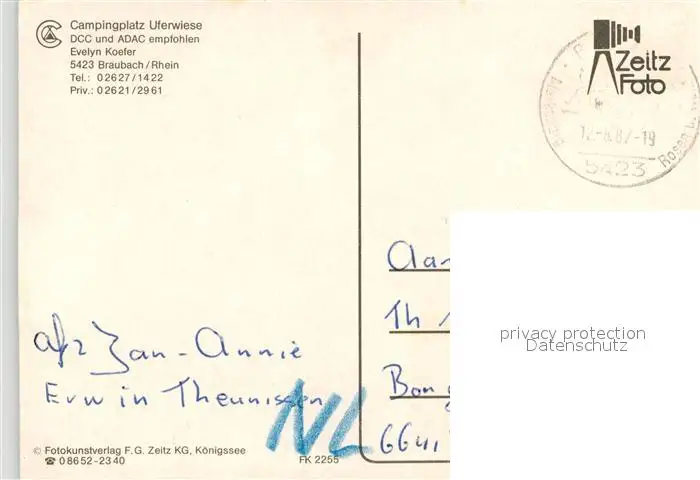 Campingplatz Uferwiese
DCC und ADAC empfohlen
Evelyn Koefer
5423 Braubach/Rhein
Tel.: 02627/1422
Priv.: 02621/2961
Zeitz
Foto
12.-8.87-19
Rosen
5423
Aan
Th
privacy protection
Datenschutz
Bon
6641
afz Jan - Annie
Erwin Theunissen
NL
© Fotokunstverlag F. G. Zeitz KG, Königssee
☎ 08652-2340
FK 2255